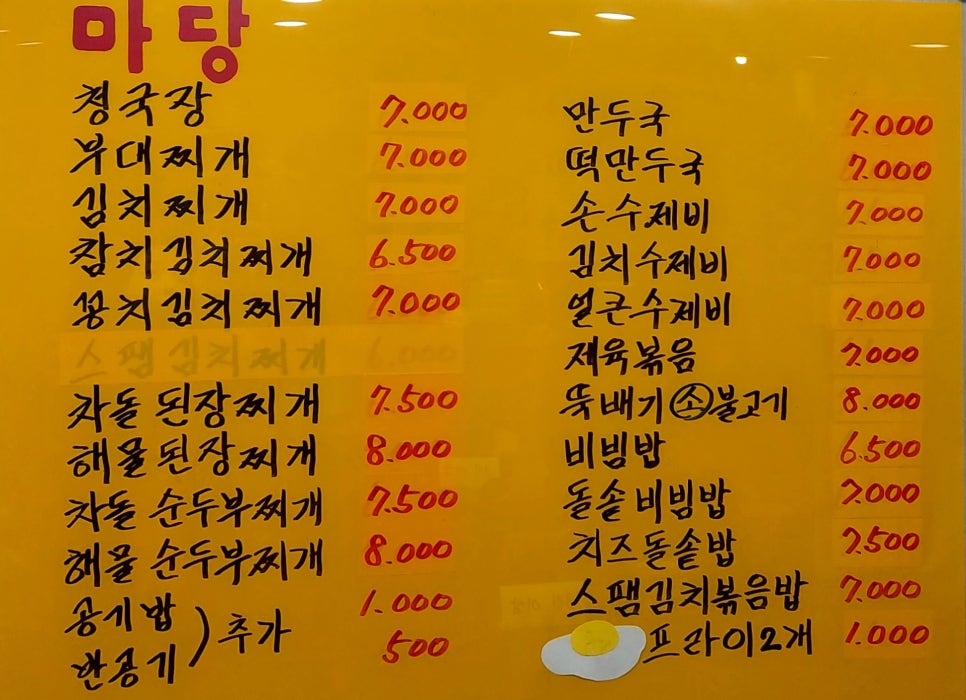 마당
청국장 7.000
부대찌개 7.000
김치찌개 7.000
참치김치찌개 6.500
꽁치김치찌개 7.000
스팸김치찌개 6.000
차돌된장찌개 7.500
해물된장찌개 8.000
차돌 순두부찌개 7.500
해물 순두부찌개 8.000
공기밥 1.000
반공기 ) 추가 500
만두국 7.000
떡만두국 7.000
손수제비 7.000
김치수제비 7.000
얼큰수제비 7.000
제육볶음 7.000
뚝배기 소 불고기 8.000
비빔밥 6.500
돌솥비빔밥 7.000
치즈돌솥밥 7.500
스팸김치볶음밥 7.000
프라이2개 1.000